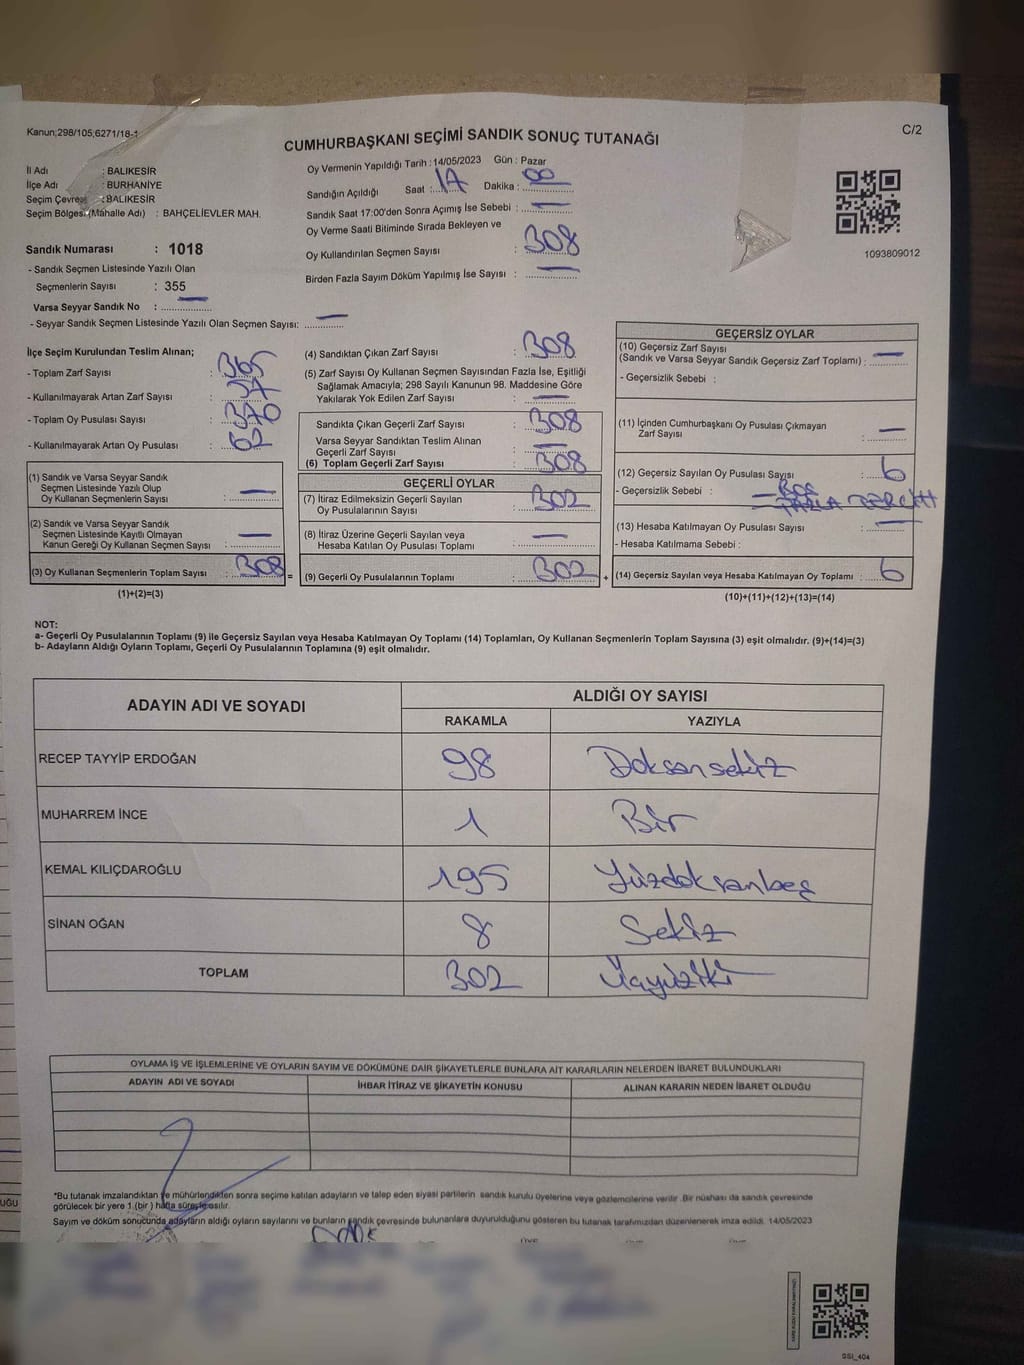 Kanun;298/105;6271/18-1
C/2
CUMHURBAŞKANI SEÇİMİ SANDIK SONUÇ TUTANAĞI
İl Adı : BALIKESİR
İlçe Adı : BURHANİYE
Seçim Çevresi : BALIKESİR
Seçim Bölgesi (Mahalle Adı) : BAHÇELİEVLER MAH.
Sandık Numarası : 1018
- Sandık Seçmen Listesinde Yazılı Olan
Seçmenlerin Sayısı : 355
Varsa Seyyar Sandık No : —
- Seyyar Sandık Seçmen Listesinde Yazılı Olan Seçmen Sayısı: —
Oy Vermenin Yapıldığı Tarih : 14/05/2023 Gün : Pazar
Sandığın Açıldığı Saat : 17 Dakika : 00
Sandık Saat 17:00'den Sonra Açımış İse Sebebi : —
Oy Verme Saati Bitiminde Sırada Bekleyen ve
Oy Kullandırılan Seçmen Sayısı : 308
Birden Fazla Sayım Döküm Yapılmış İse Sayısı : —
1093809012
İlçe Seçim Kurulundan Teslim Alınan;
- Toplam Zarf Sayısı : 365
- Kullanılmayarak Artan Zarf Sayısı : 57
- Toplam Oy Pusulası Sayısı : 370
- Kullanılmayarak Artan Oy Pusulası : 62
(1) Sandık ve Varsa Seyyar Sandık
Seçmen Listesinde Yazılı Olup
Oy Kullanan Seçmenlerin Sayısı : —
(2) Sandık ve Varsa Seyyar Sandık
Seçmen Listesinde Kayıtlı Olmayan
Kanun Gereği Oy Kullanan Seçmen Sayısı : —
(3) Oy Kullanan Seçmenlerin Toplam Sayısı : 308 =
(1)+(2)=(3)
(4) Sandıktan Çıkan Zarf Sayısı : 308
(5) Zarf Sayısı Oy Kullanan Seçmen Sayısından Fazla İse, Eşitliği
Sağlamak Amacıyla; 298 Sayılı Kanunun 98. Maddesine Göre
Yakılarak Yok Edilen Zarf Sayısı : —
Sandıkta Çıkan Geçerli Zarf Sayısı : 308
Varsa Seyyar Sandıktan Teslim Alınan
Geçerli Zarf Sayısı : —
(6) Toplam Geçerli Zarf Sayısı : 308
GEÇERLİ OYLAR
(7) İtiraz Edilmeksizin Geçerli Sayılan
Oy Pusulalarının Sayısı : 302
(8) İtiraz Üzerine Geçerli Sayılan veya
Hesaba Katılan Oy Pusulası Toplamı : —
(9) Geçerli Oy Pusulalarının Toplamı : 302 +
GEÇERSİZ OYLAR
(10) Geçersiz Zarf Sayısı
(Sandık ve Varsa Seyyar Sandık Geçersiz Zarf Toplamı) : —
- Geçersizlik Sebebi :
(11) İçinden Cumhurbaşkanı Oy Pusulası Çıkmayan
Zarf Sayısı : —
(12) Geçersiz Sayılan Oy Pusulası Sayısı : 6
- Geçersizlik Sebebi : — BOŞ
— FAZLA TERCİH
(13) Hesaba Katılmayan Oy Pusulası Sayısı : —
- Hesaba Katılmama Sebebi :
(14) Geçersiz Sayılan veya Hesaba Katılmayan Oy Toplamı : 6
(10)+(11)+(12)+(13)=(14)
NOT:
a- Geçerli Oy Pusulalarının Toplamı (9) ile Geçersiz Sayılan veya Hesaba Katılmayan Oy Toplamı (14) Toplamları, Oy Kullanan Seçmenlerin Toplam Sayısına (3) eşit olmalıdır. (9)+(14)=(3)
b- Adayların Aldığı Oyların Toplamı, Geçerli Oy Pusulalarının Toplamına (9) eşit olmalıdır.
ADAYIN ADI VE SOYADI
ALDIĞI OY SAYISI
RAKAMLA YAZIYLA
RECEP TAYYİP ERDOĞAN 98 Doksansekiz
MUHARREM İNCE 1 Bir
KEMAL KILIÇDAROĞLU 195 Yüzdoksanbeş
SİNAN OĞAN 8 Sekiz
TOPLAM 302 Üçyüziki
OYLAMA İŞ VE İŞLEMLERİNE VE OYLARIN SAYIM VE DÖKÜMÜNE DAİR ŞİKAYETLERLE BUNLARA AİT KARARLARIN NELERDEN İBARET BULUNDUKLARI
ADAYIN ADI VE SOYADI İHBAR İTİRAZ VE ŞİKAYETİN KONUSU ALINAN KARARIN NEDEN İBARET OLDUĞU
*Bu tutanak imzalandıktan ve mühürlendikten sonra seçime katılan adayların ve talep eden siyasi partilerin sandık kurulu üyelerine veya gözlemcilerine verilir. Bir nüshası da sandık çevresinde
görülecek bir yere 1 (bir) hafta süreyle asılır.
Sayım ve döküm sonucunda adayların aldığı oyların sayılarını ve bunların sandık çevresinde bulunanlara duyurulduğunu gösteren bu tutanak tarafımızdan düzenlenerek imza edildi. 14/05/2023
GSI_404